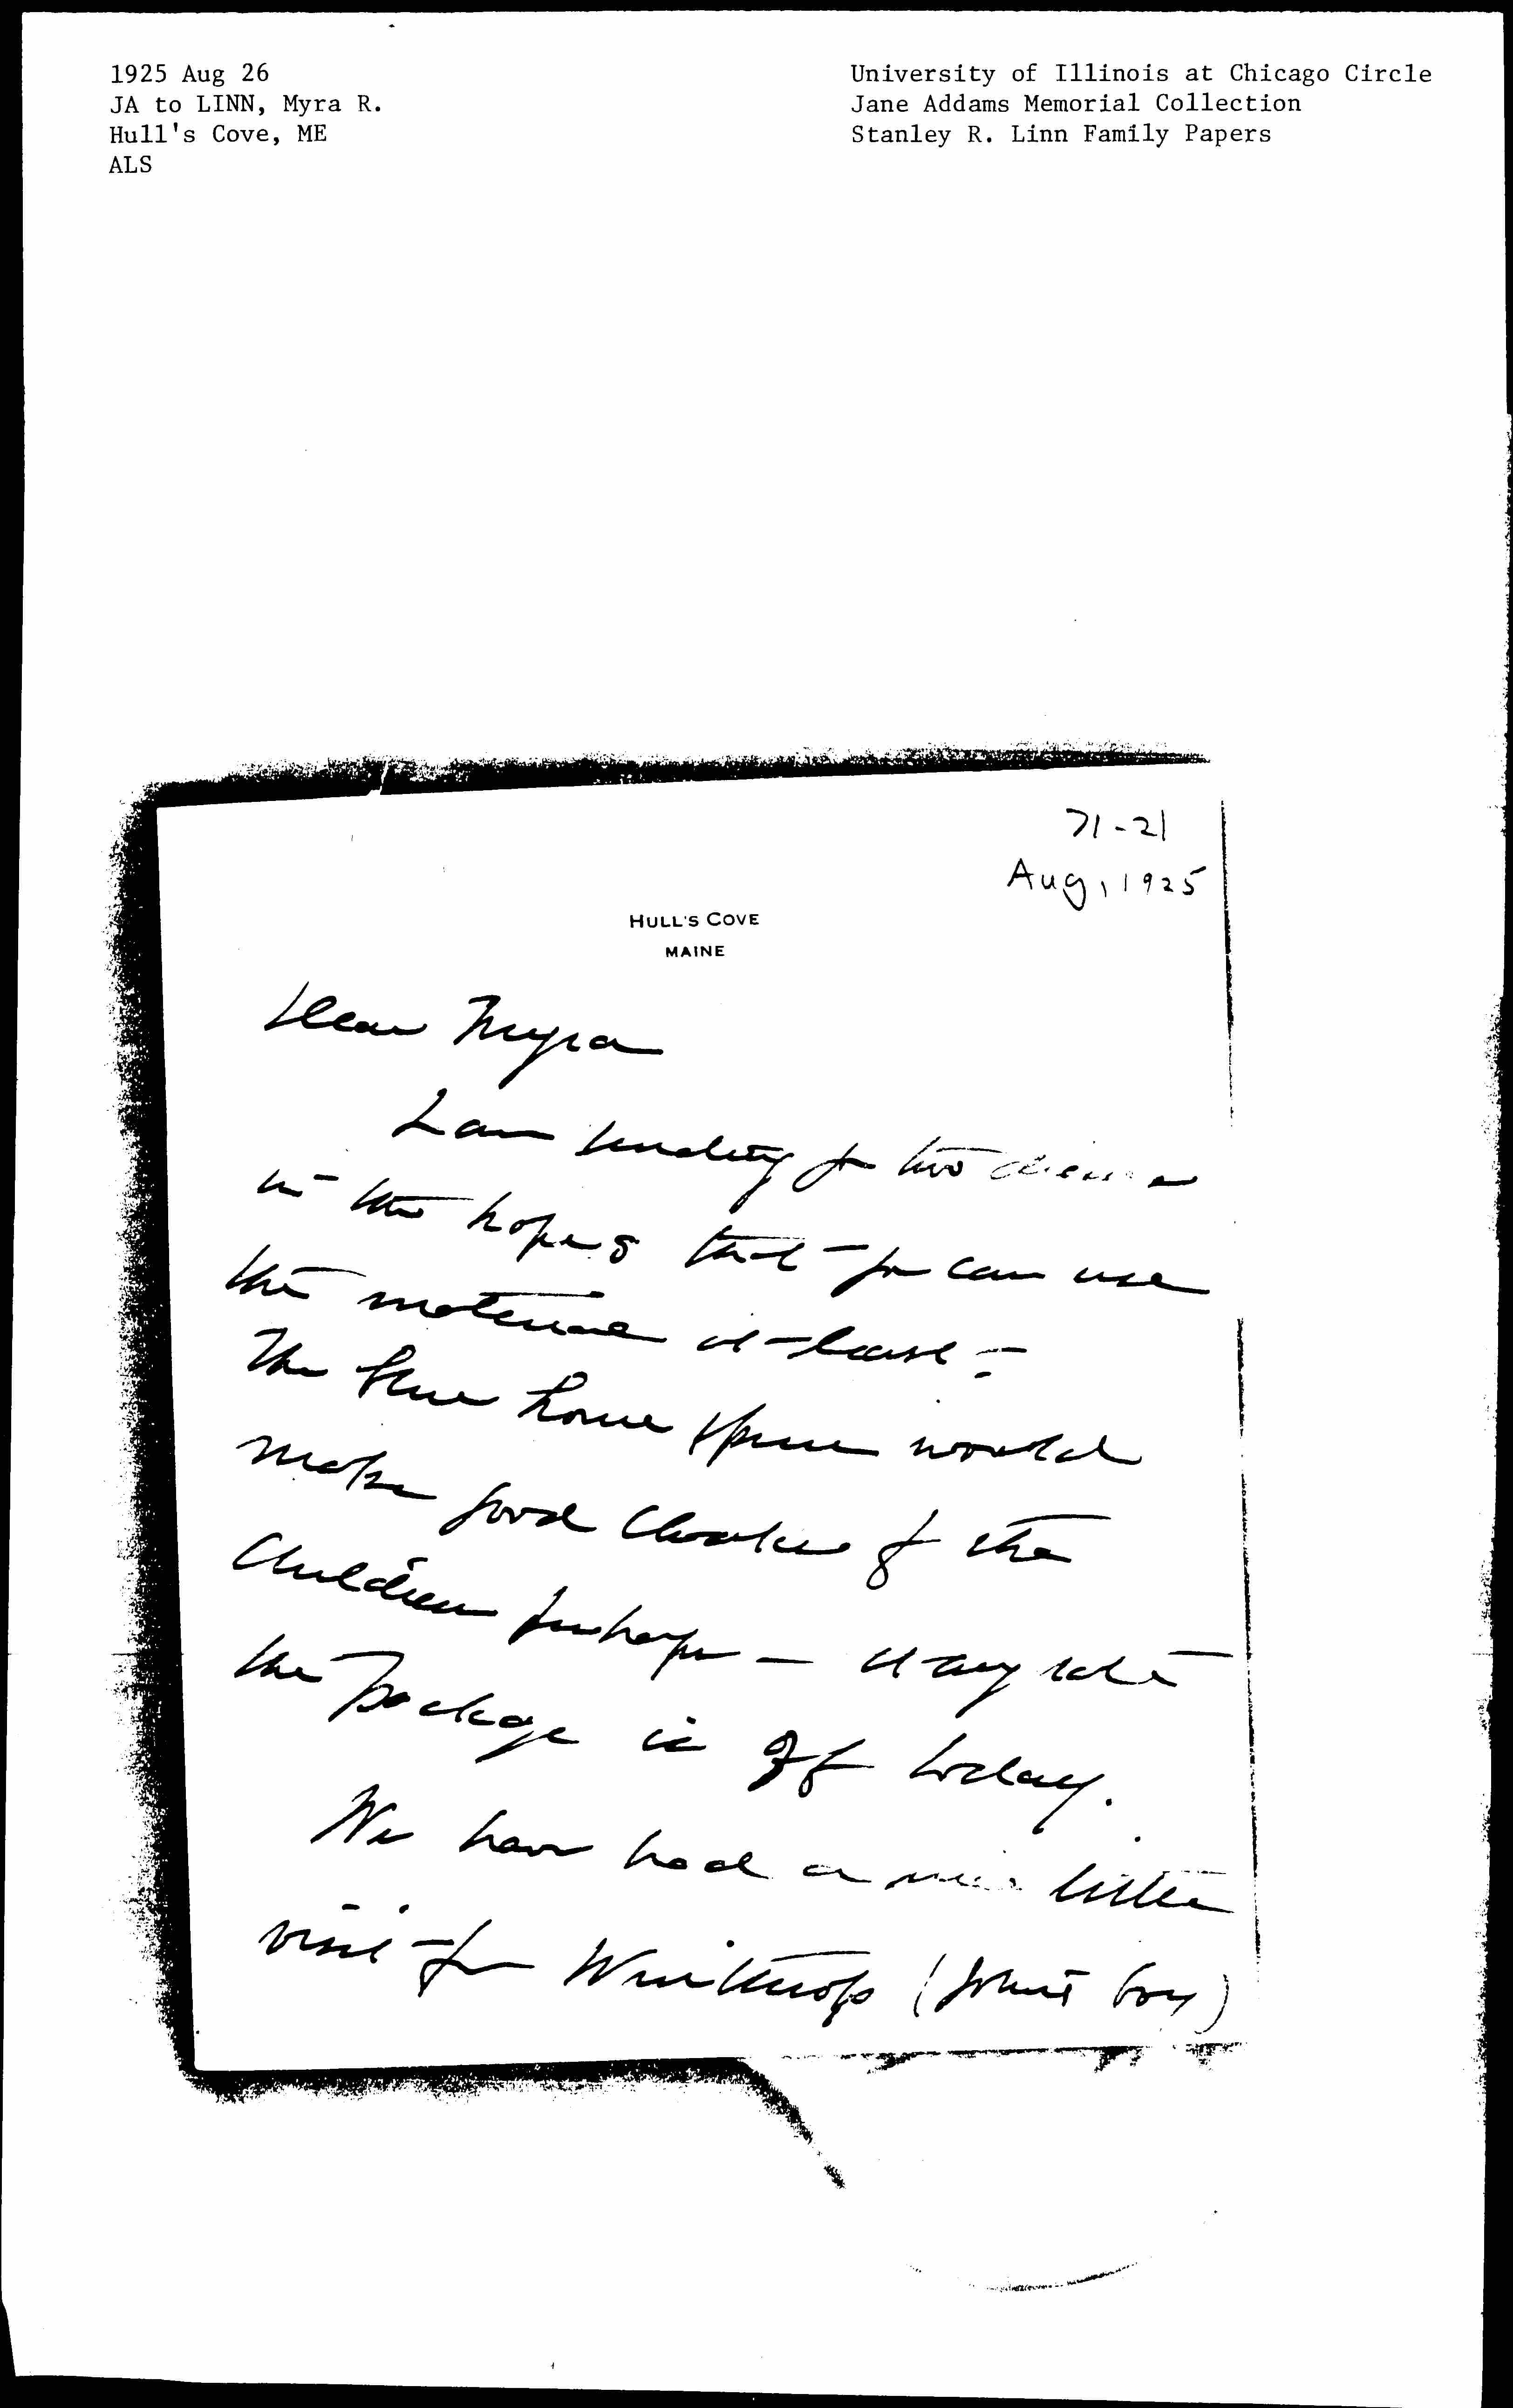 1925 Aug 26
JA to LINN, Myra R.
Hull's Cove, ME
ALS
University of Illinois at Chicago Circle
Jane Addams Memorial Collection
Stanley R. Linn Family Papers
71-21
Aug, 1925
HULL'S COVE
MAINE
Dear Myra
I am sending you two dresses
in the hopes that you can use
the material at least -
The blue home spun would
make good cloaks for the
children perhaps - at any rate
the package is off today.
We have had a nice little
visit from Winthrop (John's boy)